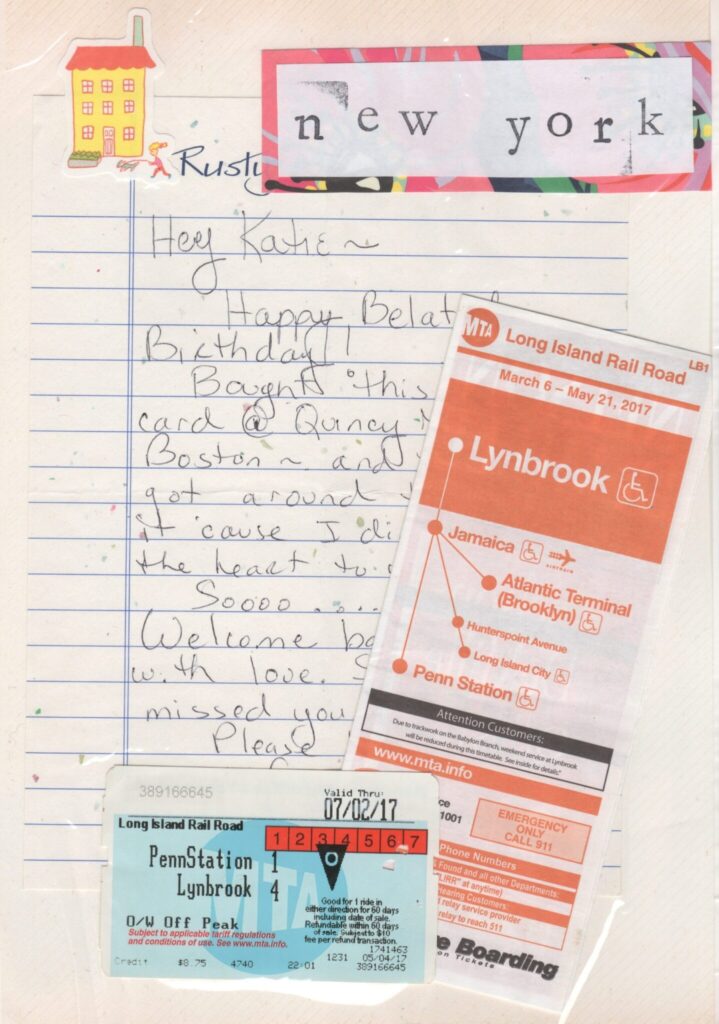 new york
Rusty
Hey Katie ~
Happy Belat
Birthday!
Bought this
card @ Quincy
Boston ~ and
got around
it 'cause I di
the heart to
Soooo ....
Welcome ba
with love. S
missed you
Please
MTA Long Island Rail Road
LB1
March 6 – May 21, 2017
Lynbrook
Jamaica
AIRTRAIN
Atlantic Terminal
(Brooklyn)
Hunterspoint Avenue
Long Island City
Penn Station
Attention Customers:
Due to trackwork on the Babylon Branch, weekend service at Lynbrook
will be reduced during this timetable. See inside for details."
www.mta.info
ce
1001
EMERGENCY
ONLY
CALL 911
Phone Numbers
& Found and all other Departments:
"LIRR" at anytime)
Hearing Customers:
relay service provider
relay to reach 511
e Boarding
on Tickets
389166645
Valid Thru:
07/02/17
Long Island Rail Road
1 2 3 4 5 6 7
PennStation 1
Lynbrook 4
O
MTA
O/W Off Peak
Subject to applicable tariff regulations
and conditions of use. See www.mta.info.
Good for 1 ride in
either direction for 60 days
including date of sale.
Refundable within 60 days
of sale. Subject to $10
fee per refund transaction.
1741463
Credit $8.75 4740 22:01 1231 05/04/17
389166645